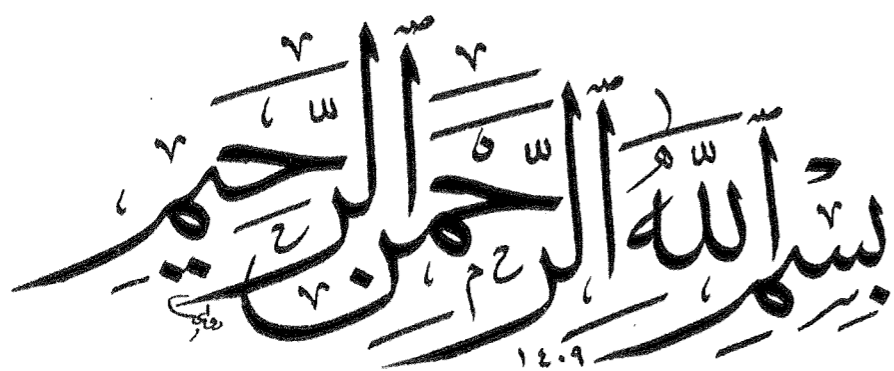 بِسْمِ ٱللَّهِ ٱلرَّحْمَٰنِ ٱلرَّحِيمِ
١٤٠٩